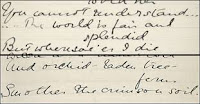 You cannot understand...
.. The world is fair and
splendid
But whensoe'er I die
And orchid-laden tree-
fern
Smother the crimson soil.